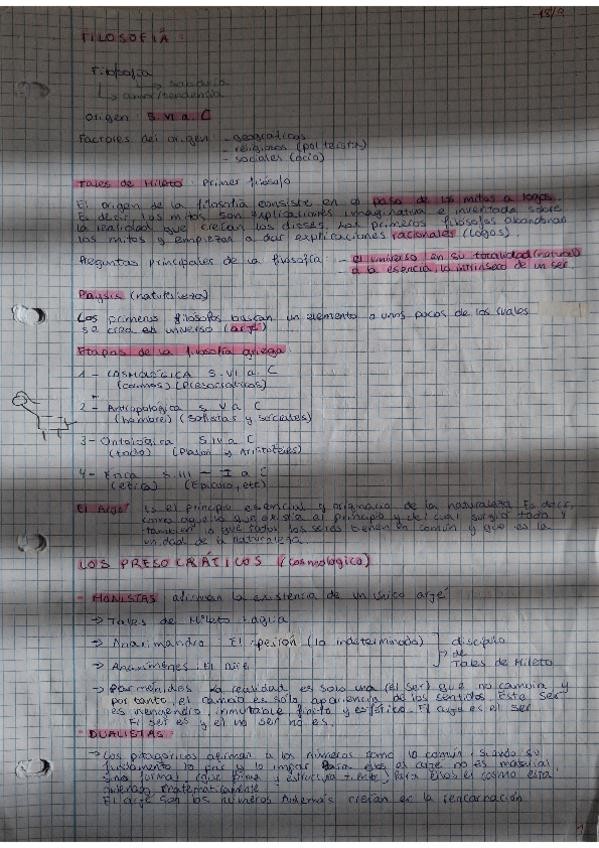 15/9
FILOSOFIÁ:
Filosofia
→ sabiduría
→ amor/tendencia
Origen: S. VI a. C
Factores del origen: - geográficos
- religiosos (politeísta)
- sociales (ocio)
Tales de Mileto: Primer filósofo
El origen de la filosofía consiste en el paso de los mitos a logos.
Es decir, los mitos son explicaciones imaginativa e inventada sobre
la realidad que creían los dioses. Los primeros filósofos abandonan
los mitos y empiezan a dar explicaciones racionales (logos)
Preguntas principales de la filosofía: - el universo (en su totalidad) (natural)
a la esencia, lo intrínseco de un ser.
Physis (naturaleza)
Los primeros filósofos buscan un elemento o unos pocos de los cuales
se crea el universo (arjé)
Etapas de la filosofía griega
1 - COSMOLÓGICA S. VI a. C
(cosmos) (Presocráticos)
2 - Antropológica S. V a C
(hombre) (Sofistas y sociales)
3 - Ontológica S. IV a C
(todo) (Platón y Aristóteles)
4 - Ética S. III - I a C
(ética) (Epicuro, etc)
El Arjé: Es el principio esencial y originario de la naturaleza. Es decir,
como aquello que existía al principio y del cual surgió todo y
también lo que todos los seres tienen en común y que es la
unidad de la naturaleza.
LOS PRESOCRÁTICOS (cosmológico)
- MONISTAS: afirman la existencia de un único arjé
→ Tales de Mileto: agua
→ Anaximandro: El ápeiron (lo indeterminado)
→ Anaxímenes: El aire
discípulo
→ de
Tales de Mileto
→ Parménides: La realidad es solo una (el ser) que no cambia y
por tanto, el cambio es solo apariencia de los sentidos. Este ser
es inengendro, inmutable, finito y esférico. El arjé es el ser
El ser es y el no ser no es.
- DUALISTAS
→ Los pitagóricos afirman a los números como lo común, siendo su
fundamento lo par y lo impar. Para que el arjé no es material,
sino formal (que forma y estructura ) Para ellos el cosmo está
ordenado matemáticamente
El arjé son los números. Además creían en la reencarnación
1